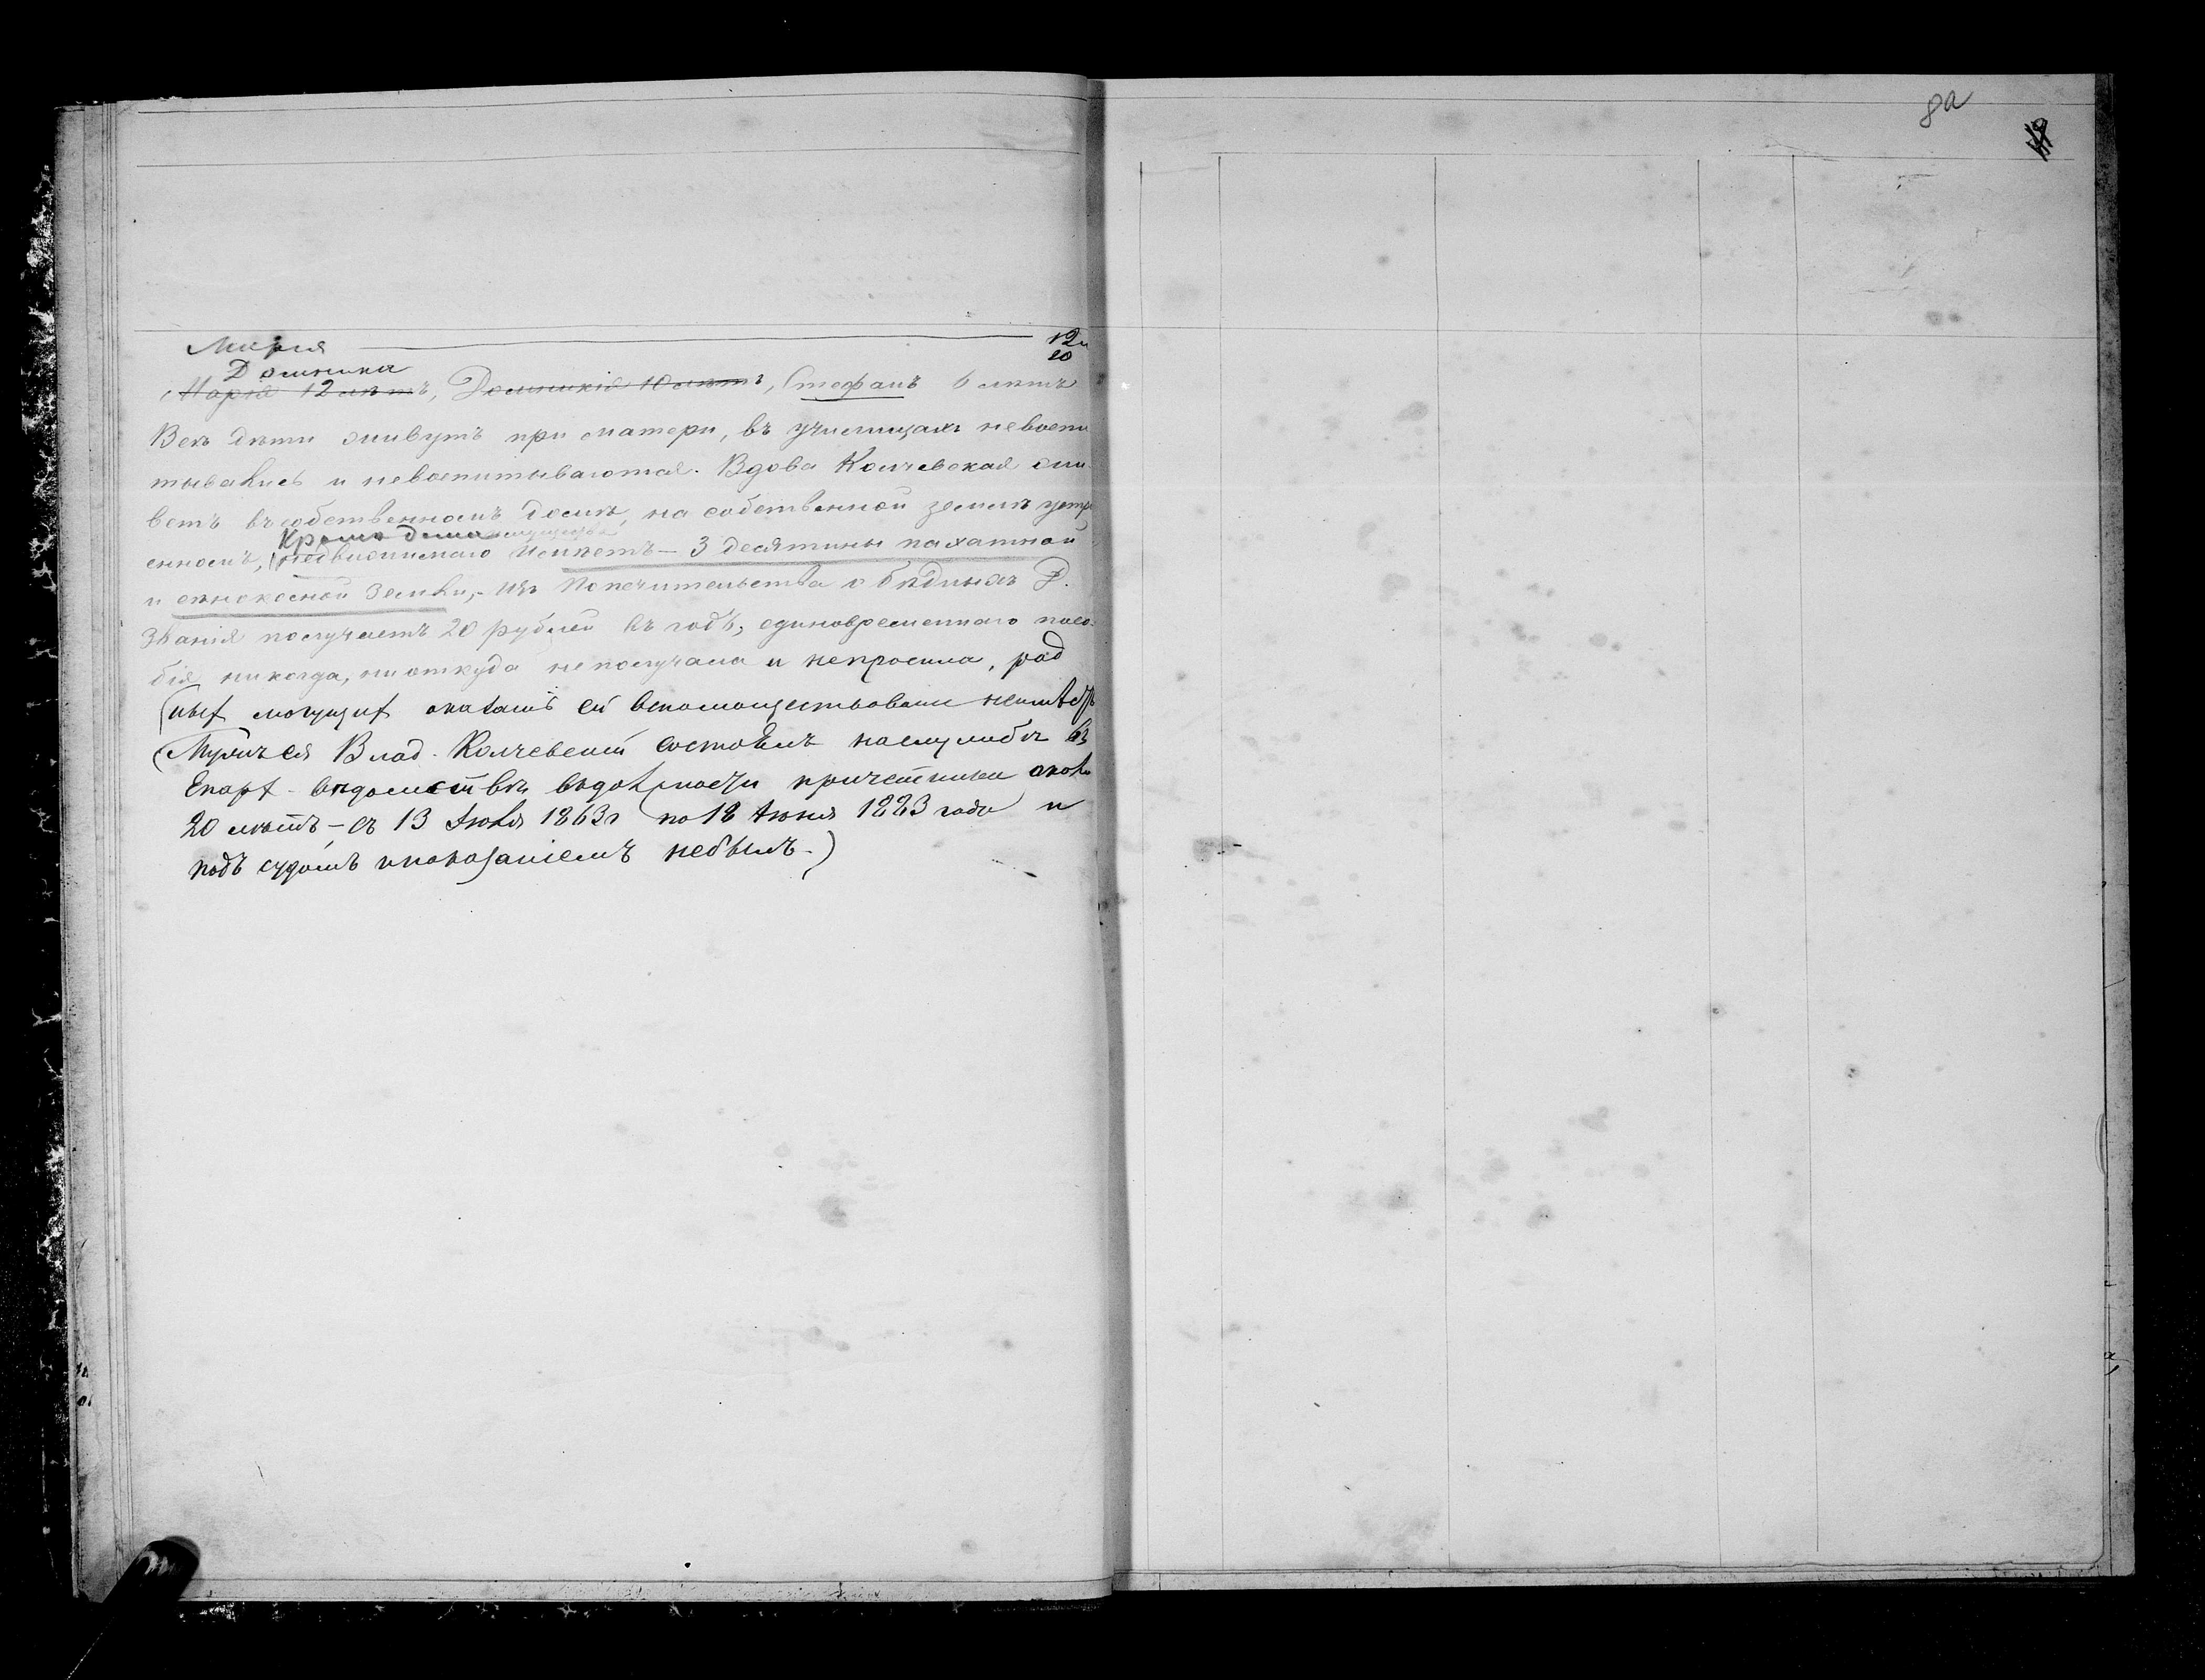 8а
Марія 12
Домника 10
Марія 12 лѣтъ, Домникія 10 лѣтъ, Стефанъ 6 лѣтъ
Всѣ дѣти живутъ при матери, въ училищахъ невоспи
тывались и невоспитываются. Вдова Колчевская жи
ветъ въ собственномъ домѣ, на собственной землѣ устро
Кромѣ дома имущества
енномъ, недвижимаго имѣетъ – 3 десятины пахатной
и сѣнокосной земли, – изъ Попечительства о бѣдныхъ Д.
званія получаетъ 20 рублей въ годъ, единовременнаго посо
бія никогда, ни откуда неполучала и непросила, род
ныхъ могущихъ оказать ей вспомоществованіе
Мужъ ея Влад. Колчевскій состоялъ на службѣ въ
Епарх. вѣдомствѣ въ должности причетника около
20 лѣтъ – съ 13 Іюля 1863 г по 18 Іюня 1883 года и
подъ судомъ и наказаніемъ небылъ.)